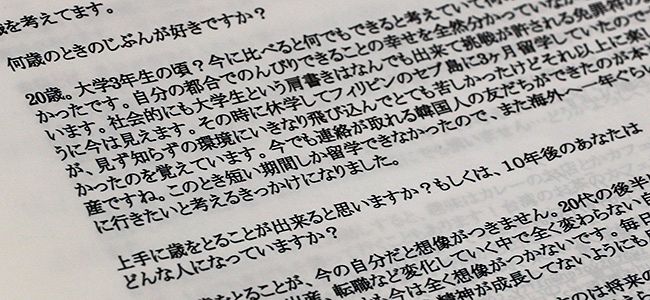 歳を考えてます。
何歳のときのじぶんが好きですか？
20歳。大学3年生の頃？今に比べると何でもできると考えていて何
かったです。自分の都合でのんびりできることの幸せを全然分かっていなか
います。社会的にも大学生という肩書きはなんでも出来て挑戦が許される免罪符の
うに今は見えます。その時に休学してフィリピンのセブ島に3ヶ月留学していたので
が、見ず知らずの環境にいきなり飛び込んでとても苦しかったけどそれ以上に楽し
かったのを覚えています。今でも連絡が取れる韓国人の友だちができたのが本
産ですね。このとき短い期間しか留学できなかったので、また海外へ一年ぐらい
に行きたいと考えるきっかけになりました。
上手に歳をとることが出来ると思いますか？もしくは、10年後のあなたは
どんな人になっていますか？
をとることが、今の自分だと想像がつきません。20代の後半
出産、転職など変化していく中で全く変わらない自
も今は全く想像がつかないです。毎日
精神が成長してないようにも
のは将来の